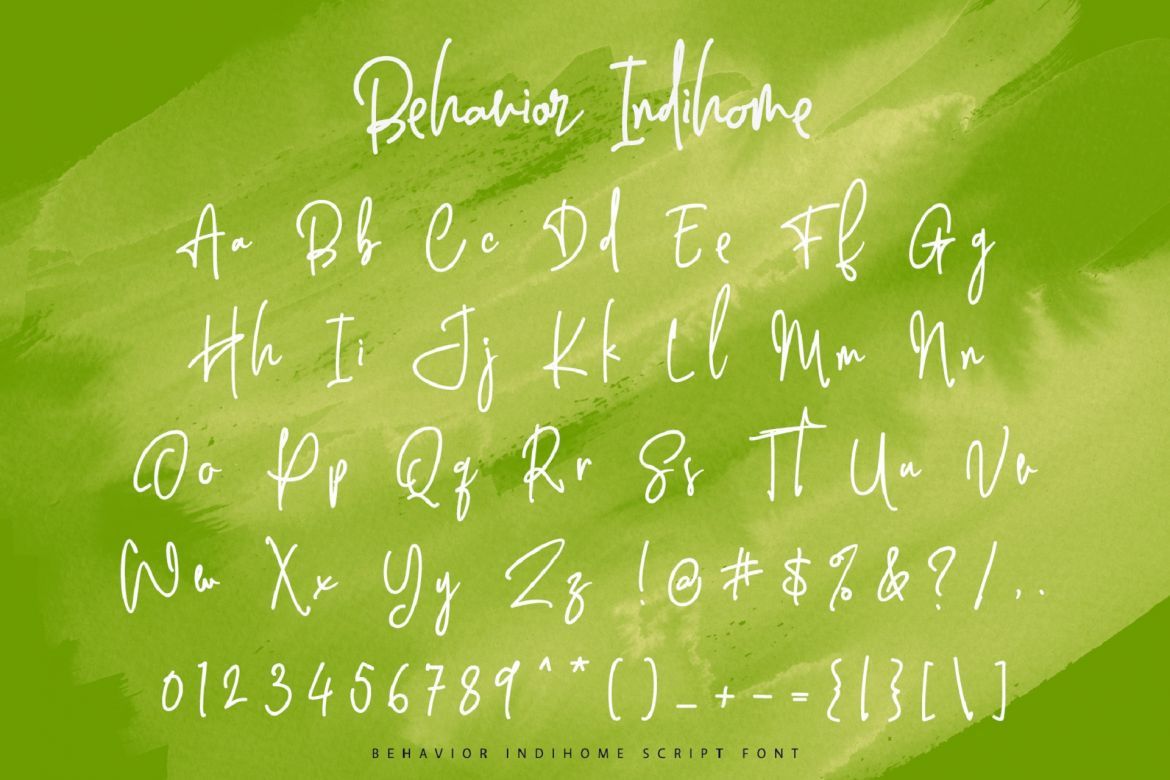 Behavior Indihome
Aa Bb Cc Dd Ee Ff Gg
Hh Ii Jj Kk Ll Mm Nn
Oo Pp Qq Rr Ss Tt Uu Vv
Ww Xx Yy Zz ! @ # $ % & ? / , .
0 1 2 3 4 5 6 7 8 9 ^ * ( ) _ + - = { | } [ \ ]
BEHAVIOR INDIHOME SCRIPT FONT